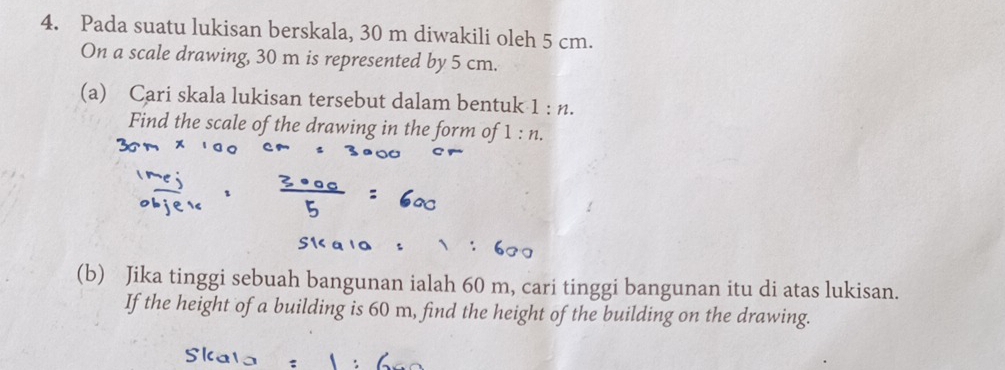 4. Pada suatu lukisan berskala, 30 m diwakili oleh 5 cm.
On a scale drawing, 30 m is represented by 5 cm.
(a) Cari skala lukisan tersebut dalam bentuk 1 : n.
Find the scale of the drawing in the form of 1 : n.
30m × 100 cm = 3000 cm
imej / objek = 3000 / 5 = 600
skala = 1 : 600
(b) Jika tinggi sebuah bangunan ialah 60 m, cari tinggi bangunan itu di atas lukisan.
If the height of a building is 60 m, find the height of the building on the drawing.
Skala = 1 : 600